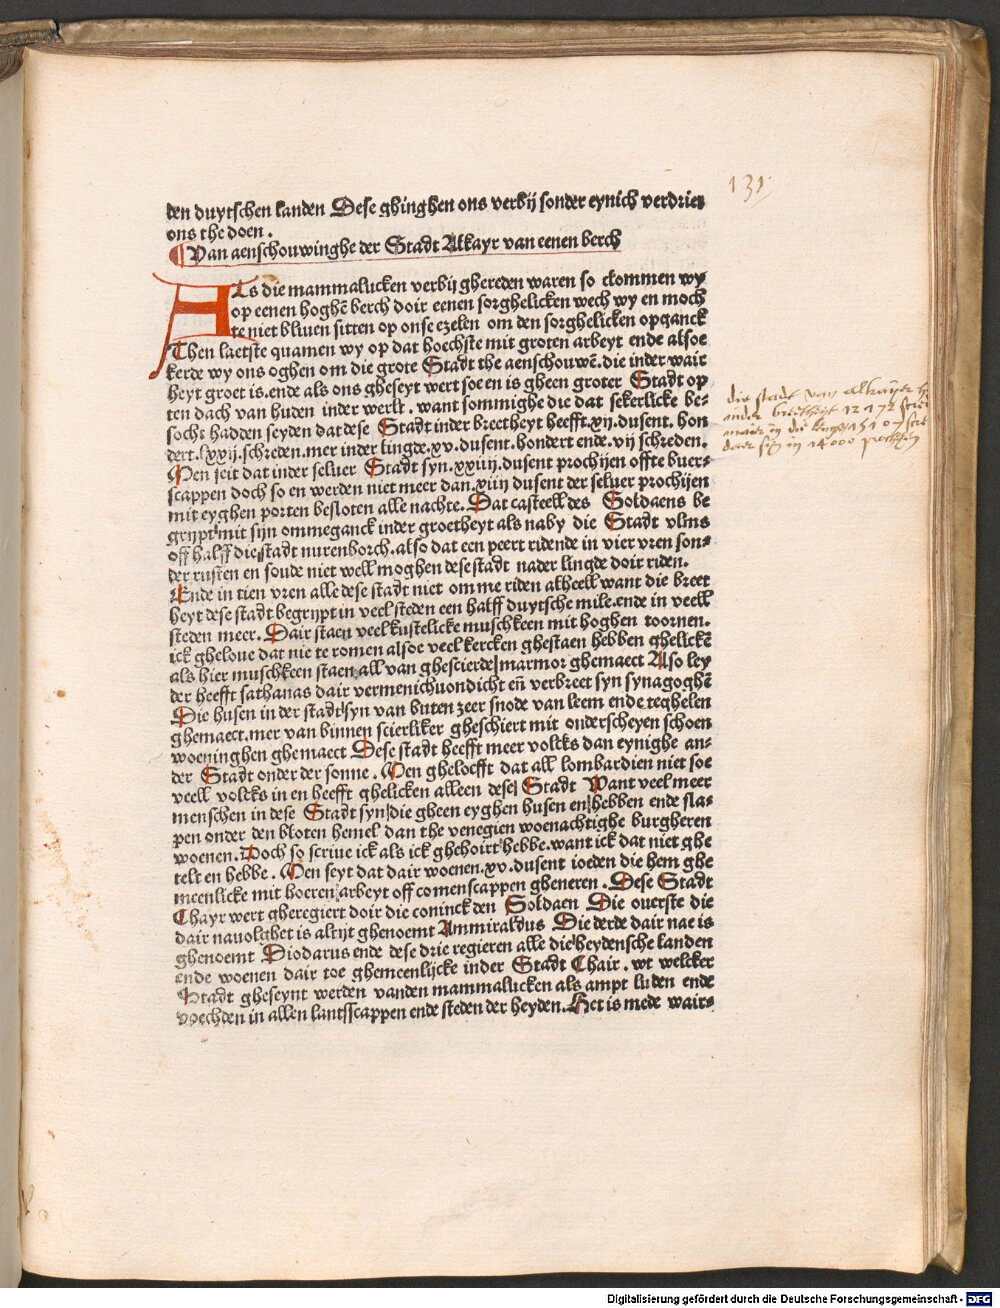 131
den duytschen landen Dese ghinghen ons verbij sonder eynich verdriet
ons the doen.
¶ Van aenschouwinghe der Stadt Alkayr van eenen berch
Als die mammalucken verbij ghereden waren so clommen wy
op eenen hoghē berch doir eenen sorghelicken wech wy en moch
te niet bliuen sitten op onse ezelen om den sorghelicken opganck
Then laetste quamen wy op dat hoechste mit groten arbeyt ende alsoe
kerde wy ons oghen om die grote Stadt the aenschouwē.die inder wair
heyt groet is.ende als ons gheseyt wert soe en is gheen groter Stadt op
ten dach van huden inder werlt. want sommighe die dat sekerlicke be-
socht hadden seyden dat dese Stadt inder breetheyt heefft.xij.dusent. hon
dert.lxxij.schreden.mer inder lingde.xv.dusent.hondert ende.vij schreden.
Men seit dat inder seluer Stadt syn.xxiiij.dusent prochijen offte buer-
scappen doch so en werden niet meer dan.xiiij dusent der seluer prochijen
mit eyghen porten besloten alle nachte. Dat casteell des Soldaens be
grijpt mit sijn ommeganck inder groetheyt als naby die Stadt vlms
off halff die stadt nurenborch.also dat een peert ridende in vier vren son-
der rusten en soude niet well moghen dese stadt nader lingde doir riden.
Ende in tien vren alle dese stadt niet omme riden alheell want die breet
heyt dese stadt begrijpt in veel steden een halff duytsche mile.ende in veell
steden meer. Dair staen veel kustelicke muschkeen mit hoghen toornen.
ick gheloue dat nie te romen alsoe veel kercken ghestaen hebben ghelickē
als hier muschkeen staen all van ghescierde marmor ghemaect Also ley
der heefft sathanas dair vermenichuondicht eñ verbreet syn synagoghē
Die husen in der stadt syn van buten zeer snode van leem ende teghelen
ghemaect.mer van binnen scierliker gheschiert mit onderscheyen schoen
woeninghen ghemaect Dese stadt heefft meer volcks dan eynighe an-
der Stadt onder der sonne. Men gheloefft dat all lombardien niet soe
veell volcks in en heefft ghelicken alleen dese Stadt Want veel meer
menschen in dese Stadt syn die gheen eyghen husen en hebben ende sla-
pen onder den bloten hemel dan the venegien woenachtighe burgheren
woenen. Doch so scriue ick als ick ghehoirt hebbe.want ick dat niet ghe
telt en hebbe. Men seyt dat dair woenen.xv.dusent ioeden die hem ghe
meenlicke mit hoeren arbeyt off comenscappen gheneren. Dese Stadt
Chayr wert gheregiert doir die coninck den Soldaen Die ouerste die
dair nauolghet is altijt ghenoemt Ammiraldus Die derde dair nae is
ghenoemt Diodarus ende dese drie regieren alle die heydensche landen
ende woenen dair toe ghemeenlijcke inder Stadt Chair. wt welcker
Stadt gheseynt werden vanden mammalucken als ampt luden ende
voechden in allen lantsscappen ende steden der heyden. Het is mede wair-
die stadt van alkayr
inder breetheyt 12172
in die lenge 15107
in 14000
Digitalisierung gefördert durch die Deutsche Forschungsgemeinschaft - DFG